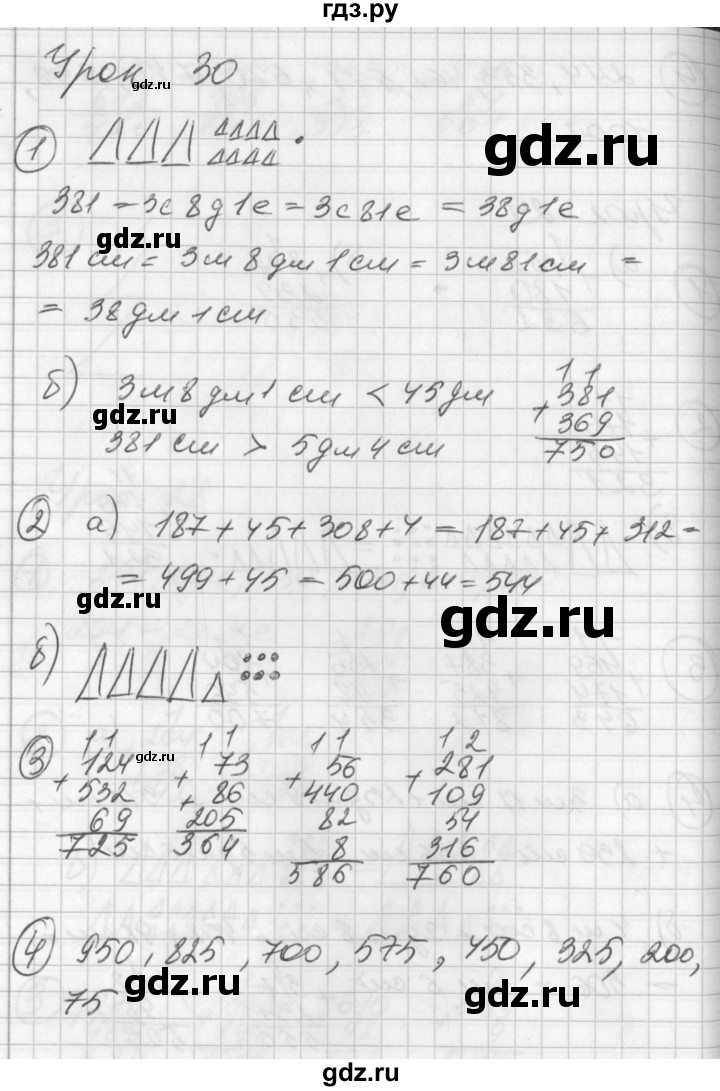 гдз.ру
Урок 30
gdz.ru
① gdz.ru
381 = 3с 8д 1е = 3с 81е = 38д 1е
gdz.ru
381 см = 3 м 8 дм 1 см = 3 м 81 см =
= 38 дм 1 см
gdz.ru
б) 3 м 8 дм 1 см < 45 дм
381 см > 5 дм 4 см
gdz.ru
1 1
+ 381
369
750
② а) 187 + 45 + 308 + 4 = 187 + 45 + 312 =
= 499 + 45 = 500 + 44 = 544
gdz.ru
gdz.ru
б)
③
1 1
+ 124
532
69
725
gdz.ru
1 1
+ 73
+ 86
205
364
1 1
+ 56
440
82
8
586
1 2
+ 281
109
54
316
760
④ 950, 825, 700, 575, 450, 325, 200,
75
gdz.ru
gdz.ru
gdz.ru